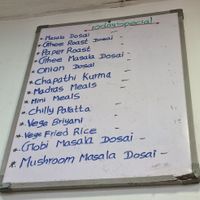 Today Special
* Masala Dosai –
* Ghee Roast Dosai –
* Paper Roast –
* Ghee Masala Dosai –
* Onion Dosai –
* Chapathi Kurma –
* Madras Meals –
* Mini Meals –
* Chilly Paratta –
* Vege Briyani –
* Vege Fried Rice –
* Gobi Masala Dosai –
* Mushroom Masala Dosai –